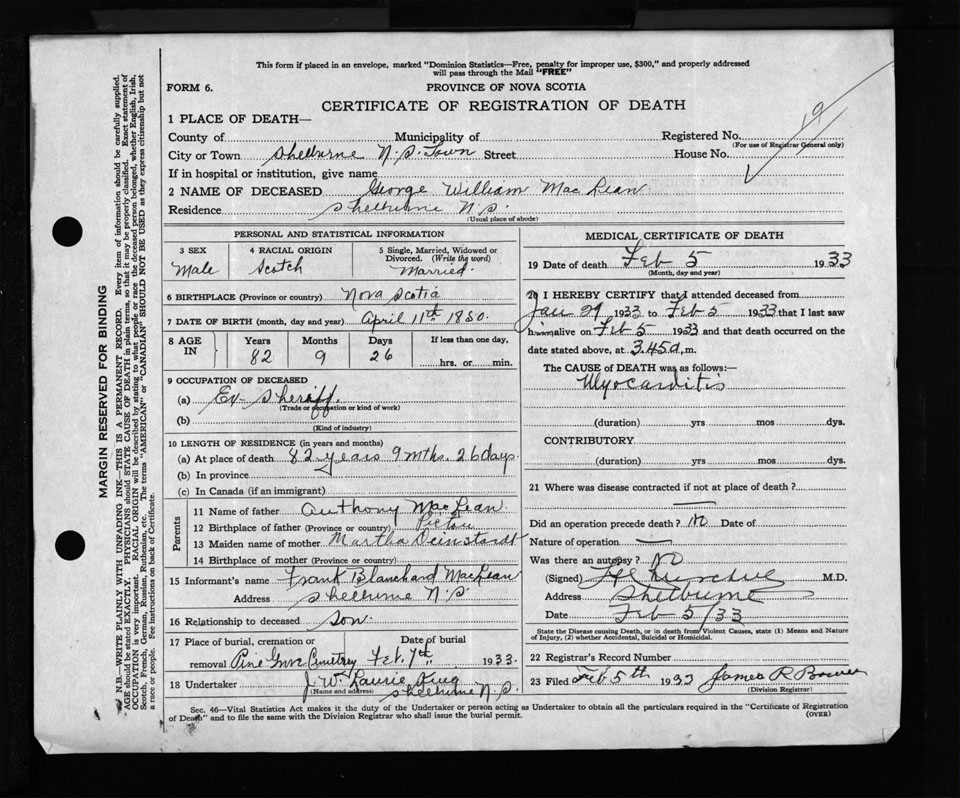 This form if placed in an envelope, marked "Dominion Statistics—Free, penalty for improper use, $300," and properly addressed
will pass through the Mail "FREE"
FORM 6.
PROVINCE OF NOVA SCOTIA
CERTIFICATE OF REGISTRATION OF DEATH
19
1 PLACE OF DEATH—
County of Municipality of Registered No.
(For use of Registrar General only)
City or Town Shelburne N.S. Town Street House No.
If in hospital or institution, give name
2 NAME OF DECEASED George William MacLean
Residence Shelburne N.S.
(Usual place of abode)
PERSONAL AND STATISTICAL INFORMATION
3 SEX Male
4 RACIAL ORIGIN Scotch
5 Single, Married, Widowed or Divorced. (Write the word) Married.
6 BIRTHPLACE (Province or country) Nova Scotia
7 DATE OF BIRTH (month, day and year) April 11th 1850.
8 AGE IN Years Months Days If less than one day,
82 9 26 hrs. or min.
9 OCCUPATION OF DECEASED
(a) Ex-Sheriff.
(Trade or occupation or kind of work)
(b)
(Kind of industry)
10 LENGTH OF RESIDENCE (in years and months)
(a) At place of death 82 years 9 mths. 26 days
(b) In province
(c) In Canada (if an immigrant)
Parents
11 Name of father Anthony MacLean
12 Birthplace of father (Province or country) Pictou
13 Maiden name of mother Martha
14 Birthplace of mother (Province or country)
15 Informant's name Frank Blanchard MacLean
Address Shelburne N.S.
16 Relationship to deceased Son.
17 Place of burial, cremation or Date of burial
removal Pine Grove Cemetry Feb. 7th 1933.
18 Undertaker J. W. Laurie
(Name and address) Shelburne N.S.
MEDICAL CERTIFICATE OF DEATH
19 Date of death Feb 5 1933
(Month, day and year)
20 I HEREBY CERTIFY that I attended deceased from
Jan 29 1933 to Feb 5 1933 that I last saw
him alive on Feb 5 1933 and that death occurred on
date stated above, at 3.45 a.m.
The CAUSE OF DEATH was as follows:—
Myocarditis
(duration) yrs mos dys.
CONTRIBUTORY
(duration) yrs mos dys.
21 Where was disease contracted if not at place of death?
Did an operation precede death? No Date of
Nature of operation
Was there an autopsy? No
(Signed) M.D.
Address Shelburne
Date Feb 5/33
State the Disease causing Death, or in death from Violent Causes, state (1) Means and Nature
of Injury, (2) whether Accidental, Suicidal or Homicidal.
22 Registrar's Record Number
23 Filed Feb 5th 1933 James R Bower
(Division Registrar)
Sec. 46—Vital Statistics Act makes it the duty of the Undertaker or person acting as Undertaker to obtain all the particulars required in the "Certificate of Registration
of Death" and to file the same with the Division Registrar who shall issue the burial permit.
(OVER)
MARGIN RESERVED FOR BINDING
N.B.—WRITE PLAINLY WITH UNFADING INK—THIS IS A PERMANENT RECORD. Every item of information should be carefully supplied.
AGE should be stated EXACTLY. PHYSICIANS should STATE CAUSE OF DEATH in plain terms, so that it may be properly classified. Exact statement of
OCCUPATION is very important. RACIAL ORIGIN will be described by stating to what people or race the deceased person belonged, whether English, Irish,
Scotch, French, German, Russian, Ruthenian, etc. The terms "AMERICAN" or "CANADIAN" SHOULD NOT BE USED as they express citizenship but not
a race or people. See instructions on back of Certificate.